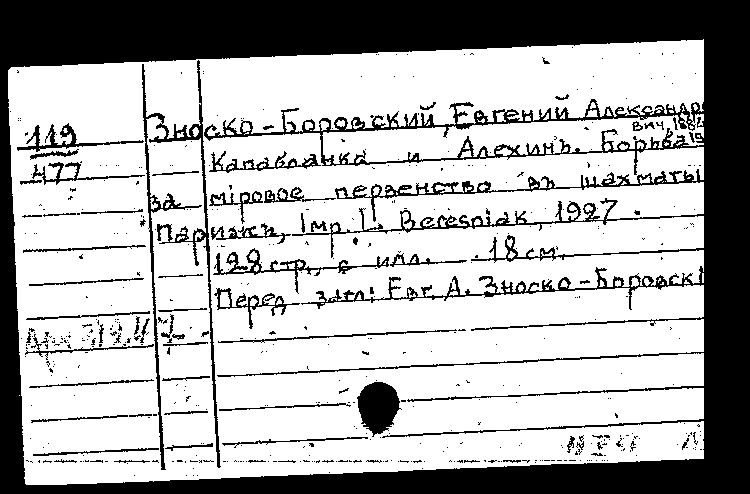 119
477
Зноско-Боровский, Евгений Александро
вич, 188
Капабланка и Алехинъ. Борьба
за міровое первенство въ шахматы
Парижъ, Imp. L. Beresniak, 1927.
128 стр., с илл. 18 см.
Перед загл: Евг. А. Зноско-Боровскі